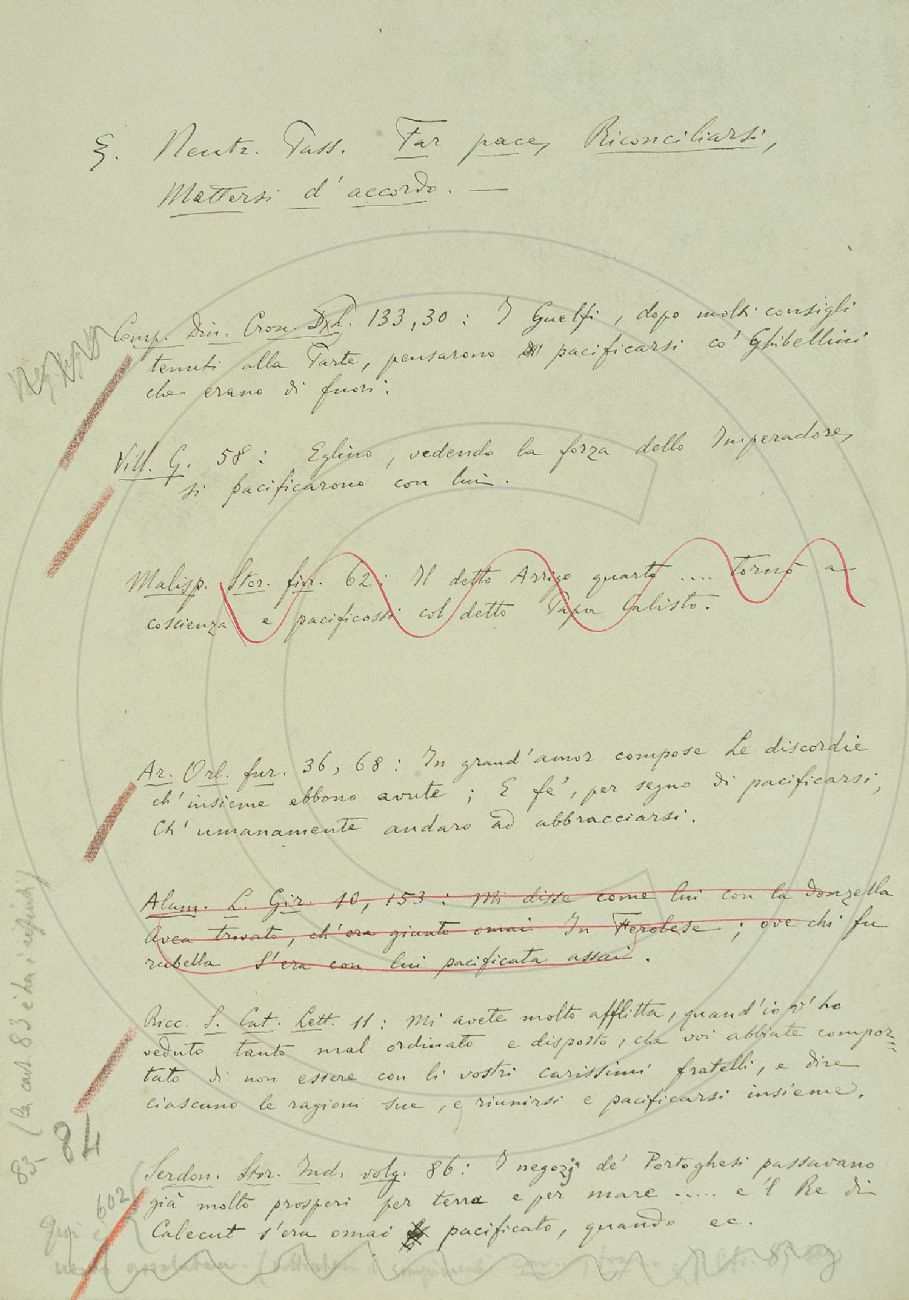 §. Neutr. Pass. Far pace, Riconciliarsi,
Mettersi d'accordo. —
Comp. Din. Cron. Dzh. 133, 30: I Guelfi, dopo molti consigli
tenuti alla Parte, pensarono pacificarsi co' Ghibellini
che erano di fuori.
Vill. G. 58: Eglino, vedendo la forza dello Imperadore,
si pacificarono con lui.
Malisp. Stor. fior. 62: Il detto Arrigo quarto .... tornò a
coscienza e pacificossi col detto Papa Calisto.
Ar. Orl. fur. 36, 68: In grand'amor compose Le discordie
ch'insieme ebbono avute; E fe', per segno di pacificarsi,
Ch'umanamente andaro ad abbracciarsi.
Alam. L. Gir. 10, 153: Mi disse come lui con la donzella
Avea trovato, ch'era giunto omai In Ferolese; ove chi fu
rubella S'era con lui pacificata assai.
Ricc. S. Cat. Lett. 11: Mi avete molto afflitta, quand'io v'ho
veduto tanto mal ordinato e disposto, che voi abbiate compor=
tato di non essere con li vostri carissimi fratelli, e dire
ciascuno le ragioni sue, e riunirsi e pacificarsi insieme.
83 (la cart. 83 è tra i rifiuti)
84
Serdon. Stor. Ind. volg. 86: I negozj de' Portoghesi passavano
già molto prosperi per terra e per mare ..... e 'l Re di
Calecut s'era omai pacificato, quando ec.
602